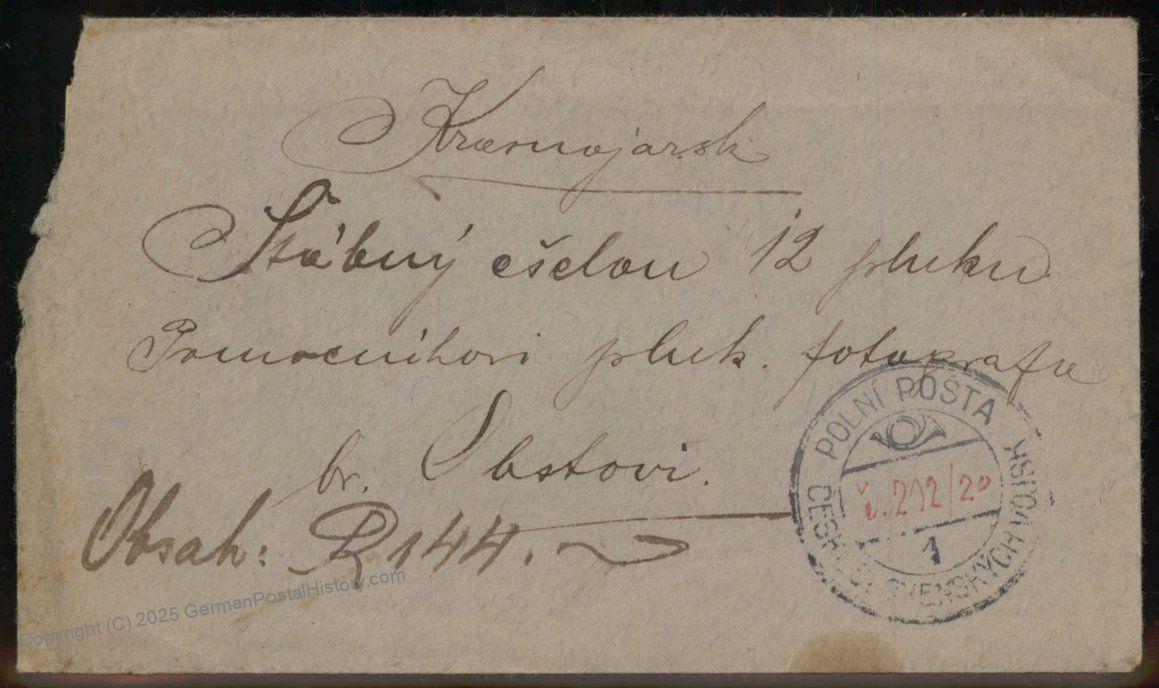 Krasnojarsk
Štábný ešelon 12 pluku
Pomocníkovi pluk. fotografa
br. Obstovi.
Obsah: R 144.
POLNÍ POŠTA
ČESKOSLOVENSKÝCH VOJSK
č. 212/20
1
Copyright (C) 2025 GermanPostalHistory.com